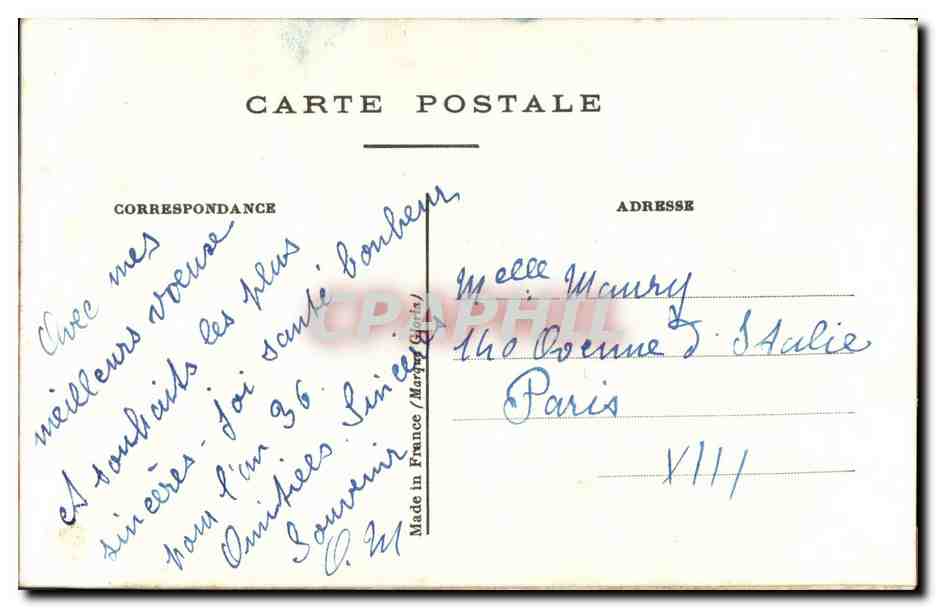 CARTE POSTALE
CORRESPONDANCE
Avec mes
meilleurs voeuxe
et souhaits les plus
sincères - Joi santé bonheur
pour l'an 36
Amitiees. Sincères
Souvenir
O. M
Made in France (Marque Gloria)
ADRESSE
Melle Maury
140 Avenue d'Italie
Paris
XIII
CPAPHIL